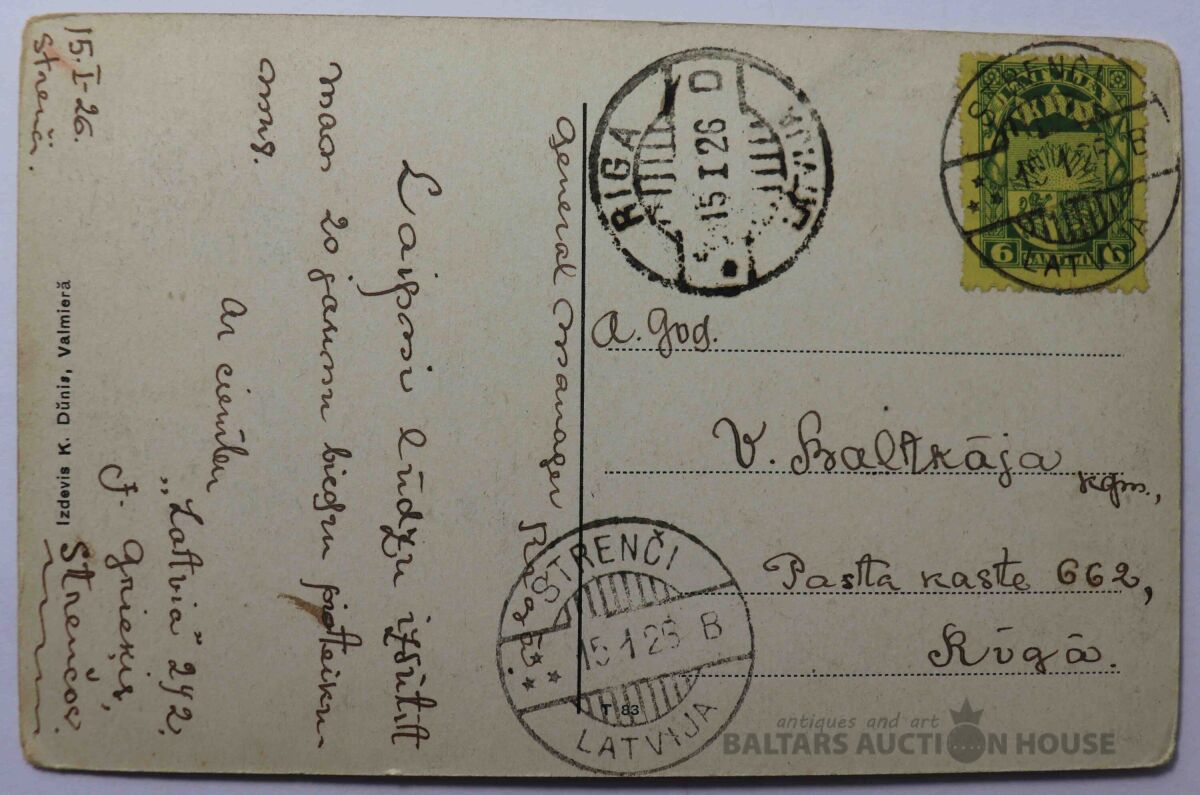 15. I - 26.
Strenči.
Laipni lūdzu izsūtīt
man 20 jaunu biedru pieteikumus.
Ar cieņu
„Latvia" 242,
J. Grieķis,
Strenčos.
Izdevis K. Dūnis, Valmierā
General Manager Rīgā.
RIGA D LATVIJA
15 I 26
STRENČI
15 1 26 B
LATVIJA
LATVIJA
6 6
SANTIMI
A. God.
V. Baltkāja kgm.,
Pasta kaste 662,
Rīgā.
STRENČI
15 1 26 B
LATVIJA
T 83
antiques and art
BALTARS AUCTION HOUSE